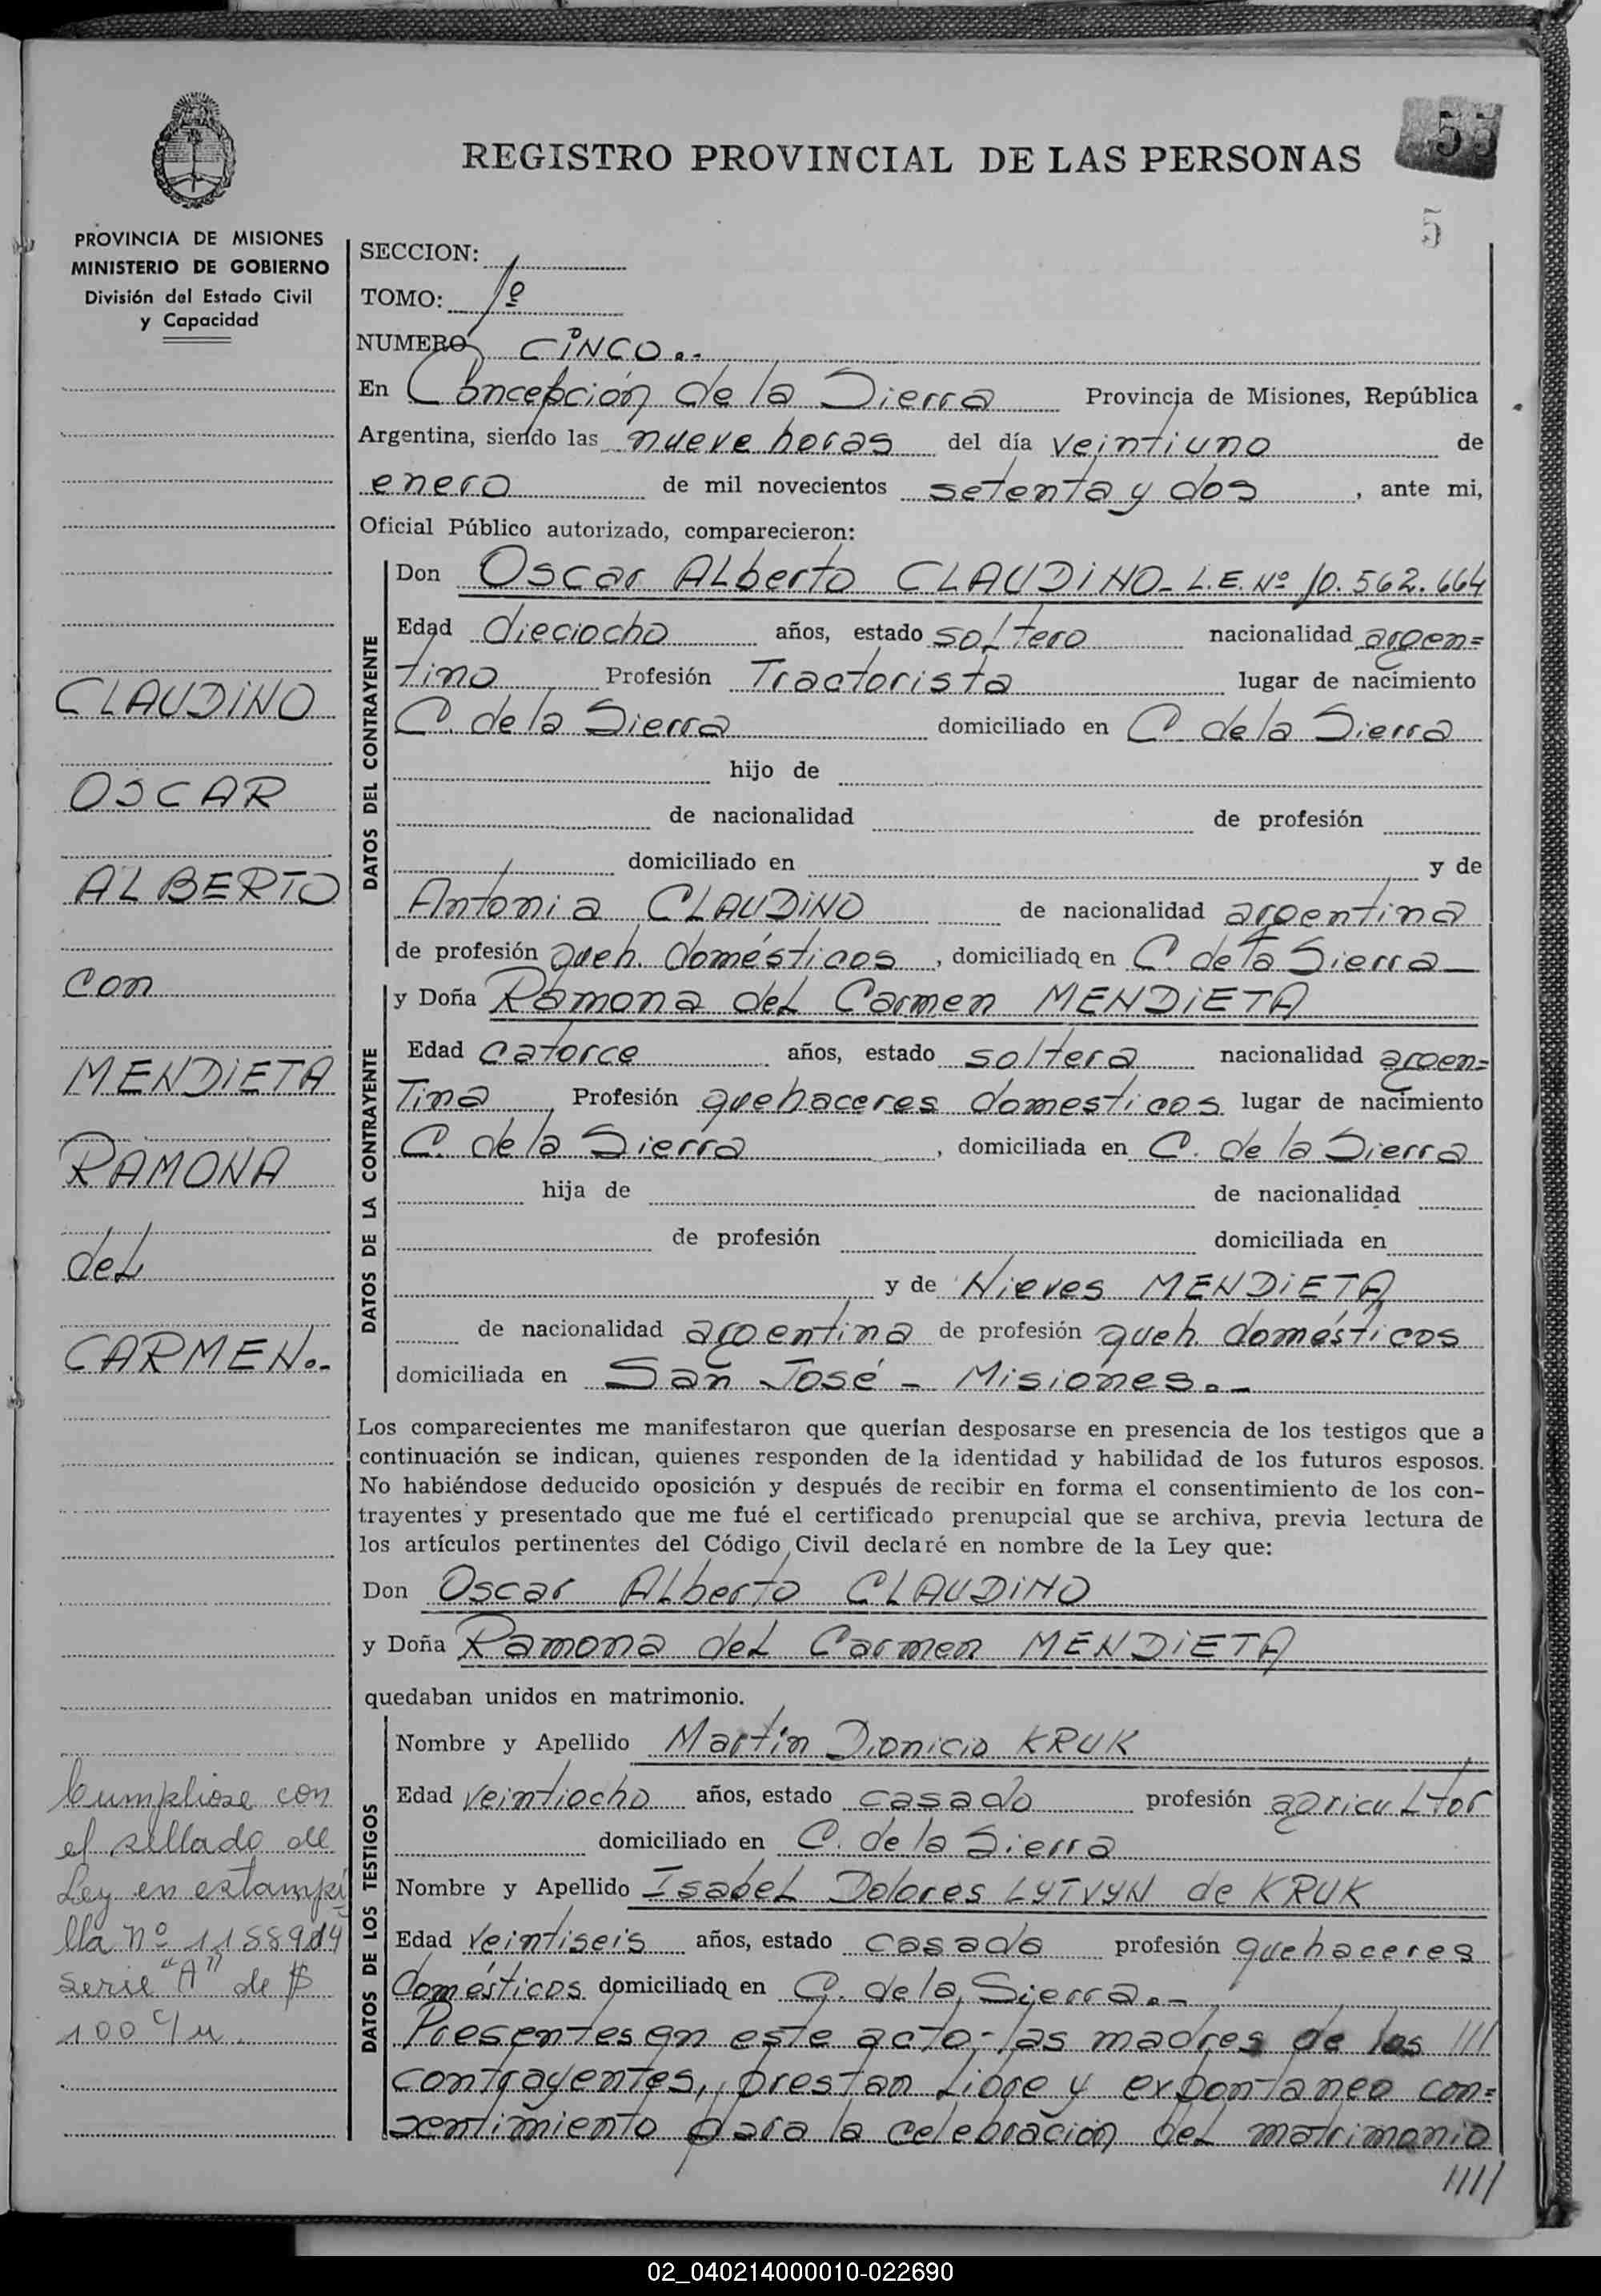 55
REGISTRO PROVINCIAL DE LAS PERSONAS
5
PROVINCIA DE MISIONES
MINISTERIO DE GOBIERNO
División del Estado Civil
y Capacidad
CLAUDINO
OSCAR
ALBERTO
con
MENDIETA
RAMONA
del
CARMEN.-
Cumpliose con
el sellado de
Ley en estampi
lla nº 1158914
serie "A" de $
100 c/u.
SECCION:
TOMO: 1º
NUMERO CINCO.-
En Concepción de la Sierra Provincia de Misiones, República
Argentina, siendo las nueve horas del día veintiuno de
enero de mil novecientos setenta y dos, ante mi,
Oficial Público autorizado, comparecieron:
DATOS DEL CONTRAYENTE
Don Oscar ALberto CLAUDINO- L.E. Nº 10.562.664
Edad dieciocho años, estado soltero nacionalidad argen=
tino Profesión Tractorista lugar de nacimiento
C. de la Sierra domiciliado en C. de la Sierra
hijo de
de nacionalidad de profesión
domiciliado en y de
Antonia CLAUDINO de nacionalidad argentina
de profesión queh. domésticos, domiciliada en C. de la Sierra-
DATOS DE LA CONTRAYENTE
y Doña Ramona del Carmen MENDIETA
Edad catorce años, estado soltera nacionalidad argen=
Tina Profesión quehaceres domesticos lugar de nacimiento
C. de la Sierra, domiciliada en C. de la Sierra
hija de de nacionalidad
de profesión domiciliada en
y de Nieves MENDIETA
de nacionalidad argentina de profesión queh. domésticos
domiciliada en San José - Misiones.-
Los comparecientes me manifestaron que querían desposarse en presencia de los testigos que a
continuación se indican, quienes responden de la identidad y habilidad de los futuros esposos.
No habiéndose deducido oposición y después de recibir en forma el consentimiento de los con-
trayentes y presentado que me fué el certificado prenupcial que se archiva, previa lectura de
los artículos pertinentes del Código Civil declaré en nombre de la Ley que:
Don Oscar ALberto CLAUDINO
y Doña Ramona del Carmen MENDIETA
quedaban unidos en matrimonio.
DATOS DE LOS TESTIGOS
Nombre y Apellido Martín Dionicio KRUK
Edad veintiocho años, estado casado profesión agricultor
domiciliado en C. de la Sierra
Nombre y Apellido Isabel Dolores LYTVYN de KRUK
Edad veintiseis años, estado casada profesión quehaceres
domésticos domiciliada en C. de la Sierra.-
Presentes en este acto- las madres de los ///
contrayentes, prestan libre y expontaneo con=
sentimiento para la celebración del matrimonio
////
02_040214000010-022690